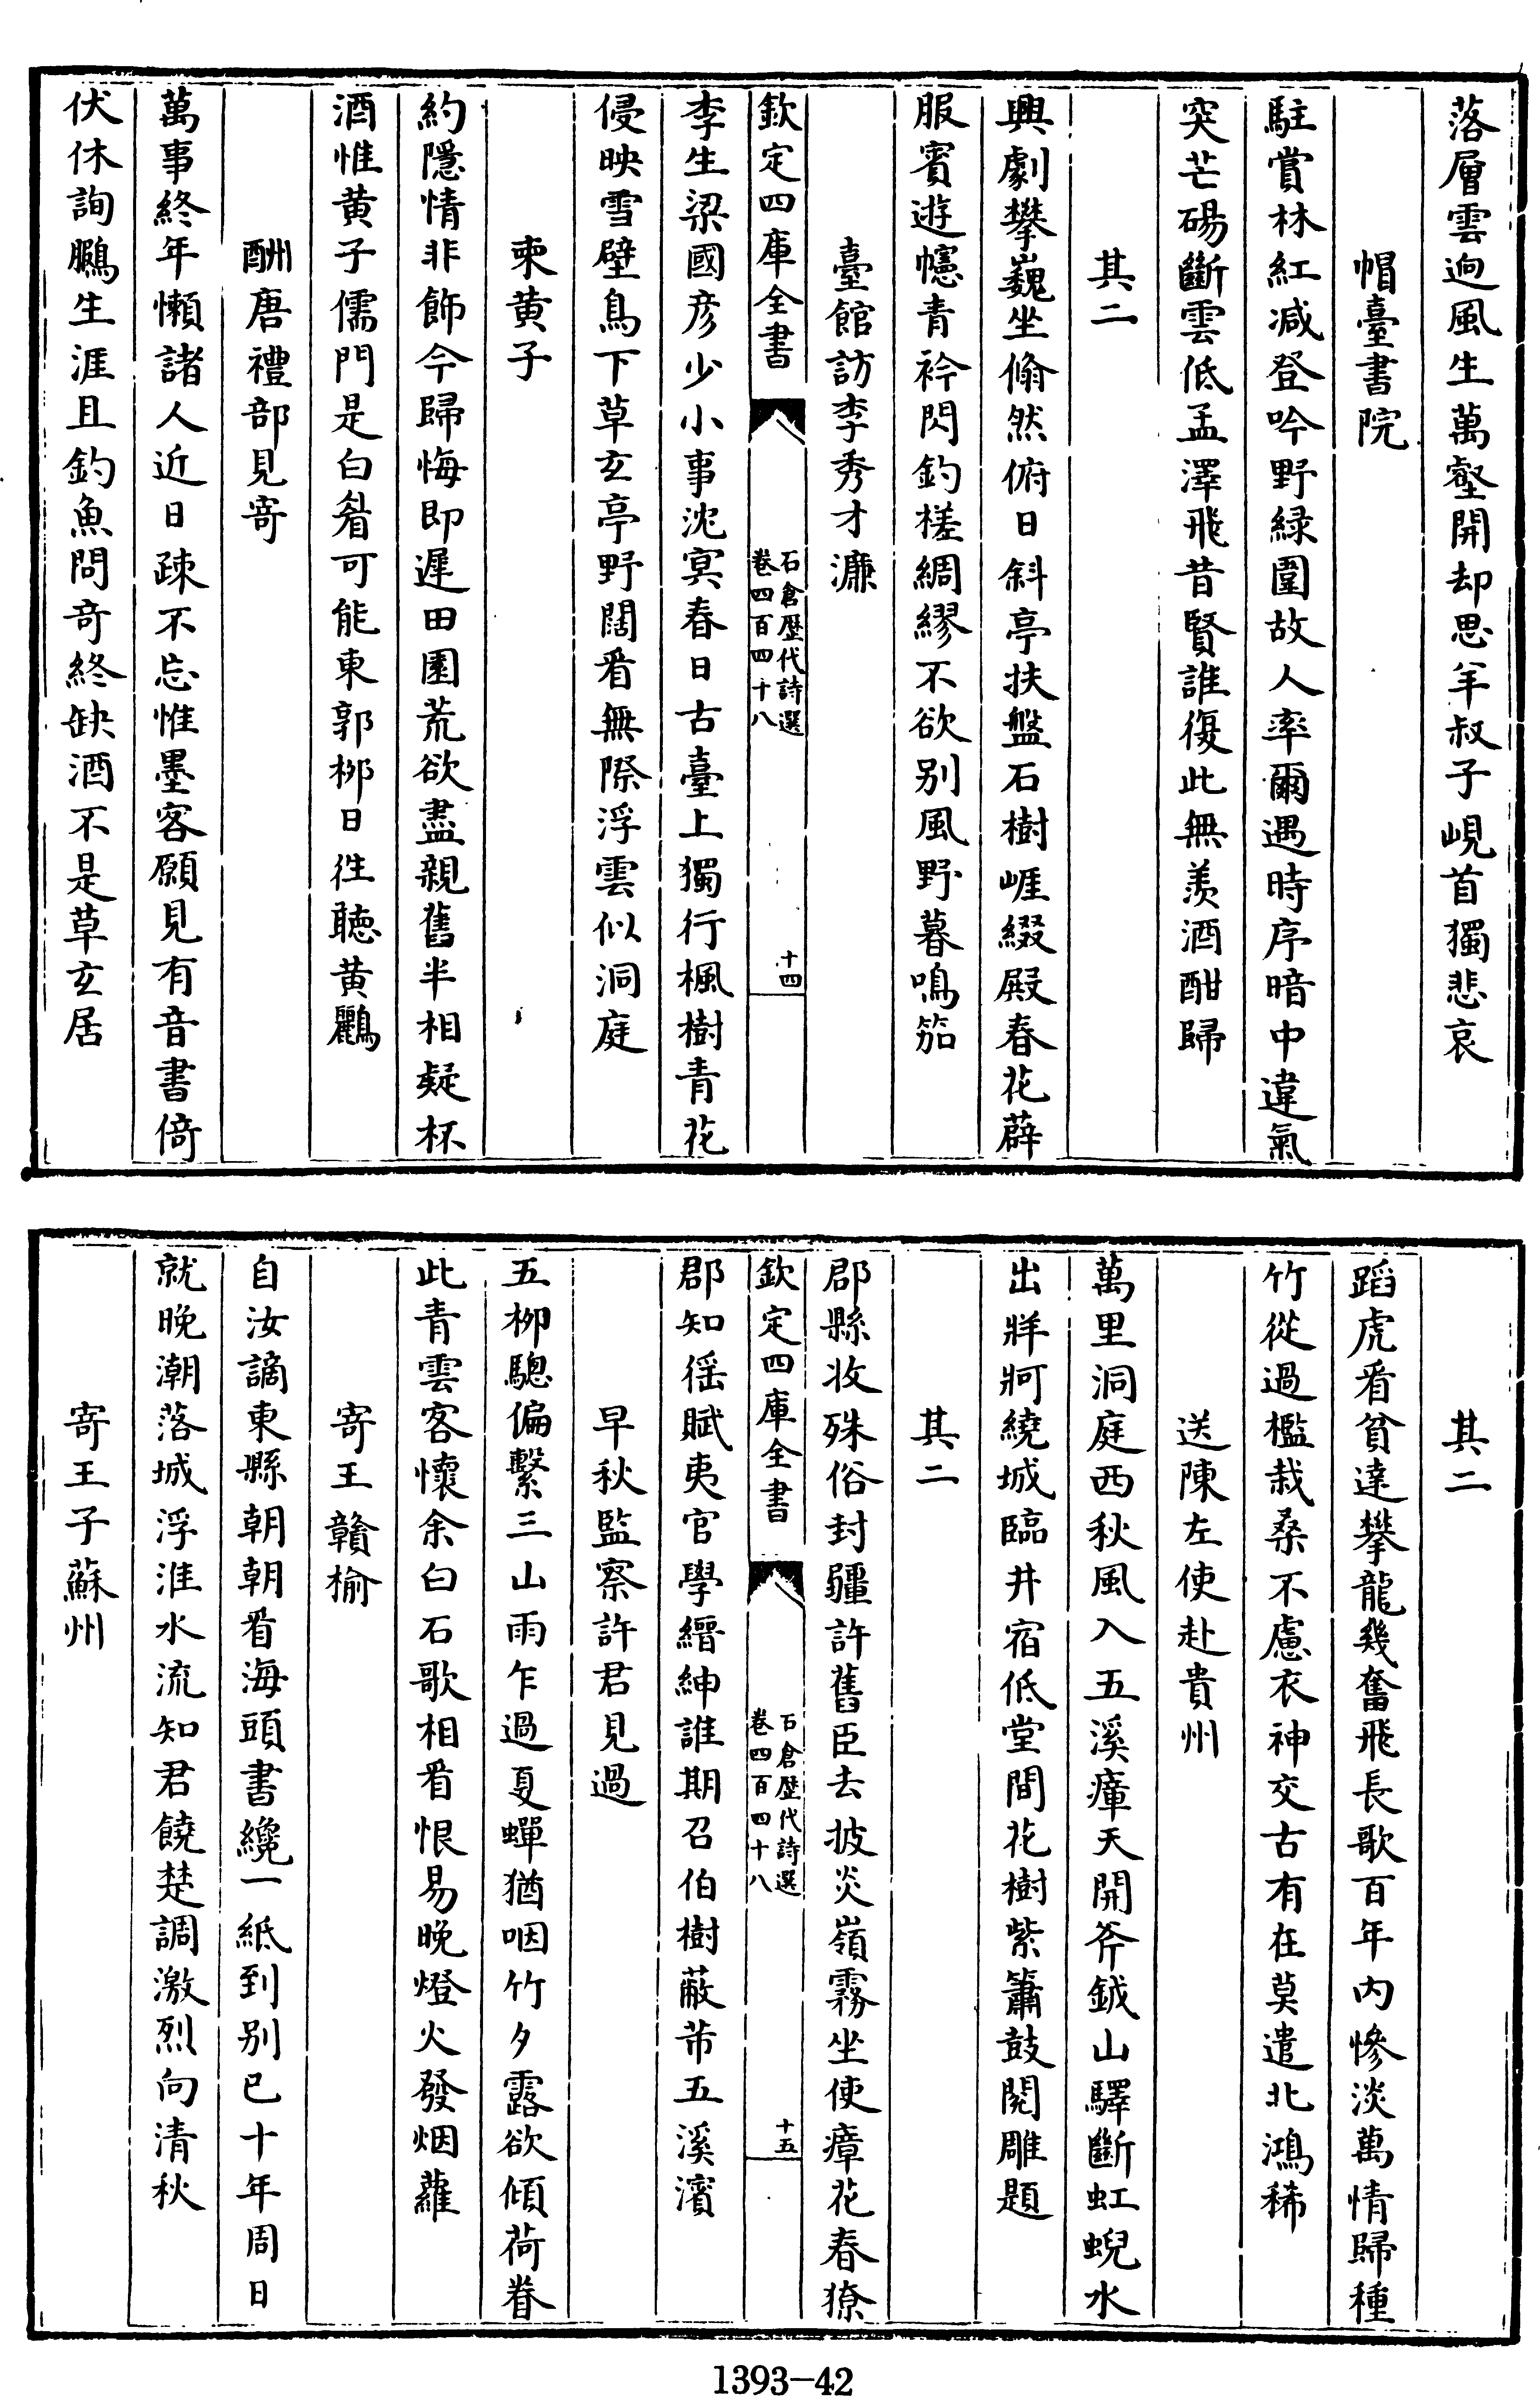 落層雲逈風生萬壑開却思羊叔子峴首獨悲哀
帽臺書院
駐賞林紅减登吟野緑圍故人率爾遇時序暗中違氣
突芒碭斷雲低孟澤飛昔賢誰復此無羨酒酣歸
其二
興劇攀巍坐翛然俯日斜亭扶盤石樹崕綴殿春花薜
服賓遊幰青衿閃釣槎綢繆不欲别風野暮鳴笳
臺館訪李秀才濂
欽定四庫全書
石倉歴代詩選
卷四百四十八
十四
李生梁國彦少小事沈冥春日古臺上獨行楓樹青花
侵映雪壁鳥下草玄亭野闊看無際浮雲似洞庭
柬黄子
約隱情非飾今歸悔即遲田園荒欲盡親舊半相疑杯
酒惟黄子儒門是白睂可能東郭栁日徃聽黄鸝
酬唐禮部見寄
萬事終年懶諸人近日疎不忘惟墨客願見有音書倚
伏休詢鵩生涯且釣魚問竒終缺酒不是草玄居
其二
蹈虎看貧達攀龍幾奮飛長歌百年内慘淡萬情歸種
竹從過檻栽桑不慮衣神交古有在莫遣北鴻稀
送陳左使赴貴州
萬里洞庭西秋風入五溪瘴天開斧鉞山驛斷虹蜺水
出牂牁繞城臨井宿低堂間花樹紫簫鼓閱雕題
其二
郡縣收殊俗封疆許舊臣去披炎嶺霧坐使瘴花春獠
欽定四庫全書
石倉歴代詩選
卷四百四十八
十五
郡知徭賦夷官學縉紳誰期召伯樹蔽芾五溪濱
早秋監察許君見過
五栁驄偏繫三山雨乍過夏蟬猶咽竹夕露欲傾荷眷
此青雲客懷余白石歌相看恨易晚燈火發烟蘿
寄王贑榆
自汝謫東縣朝朝看海頭書纔一紙到别已十年周日
就晚潮落城浮淮水流知君饒楚調激烈向清秋
寄王子蘇州
1393—42